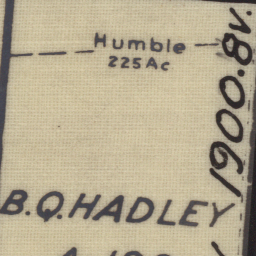 Humble
225 Ac
1900.8v.
B.Q. HADLEY